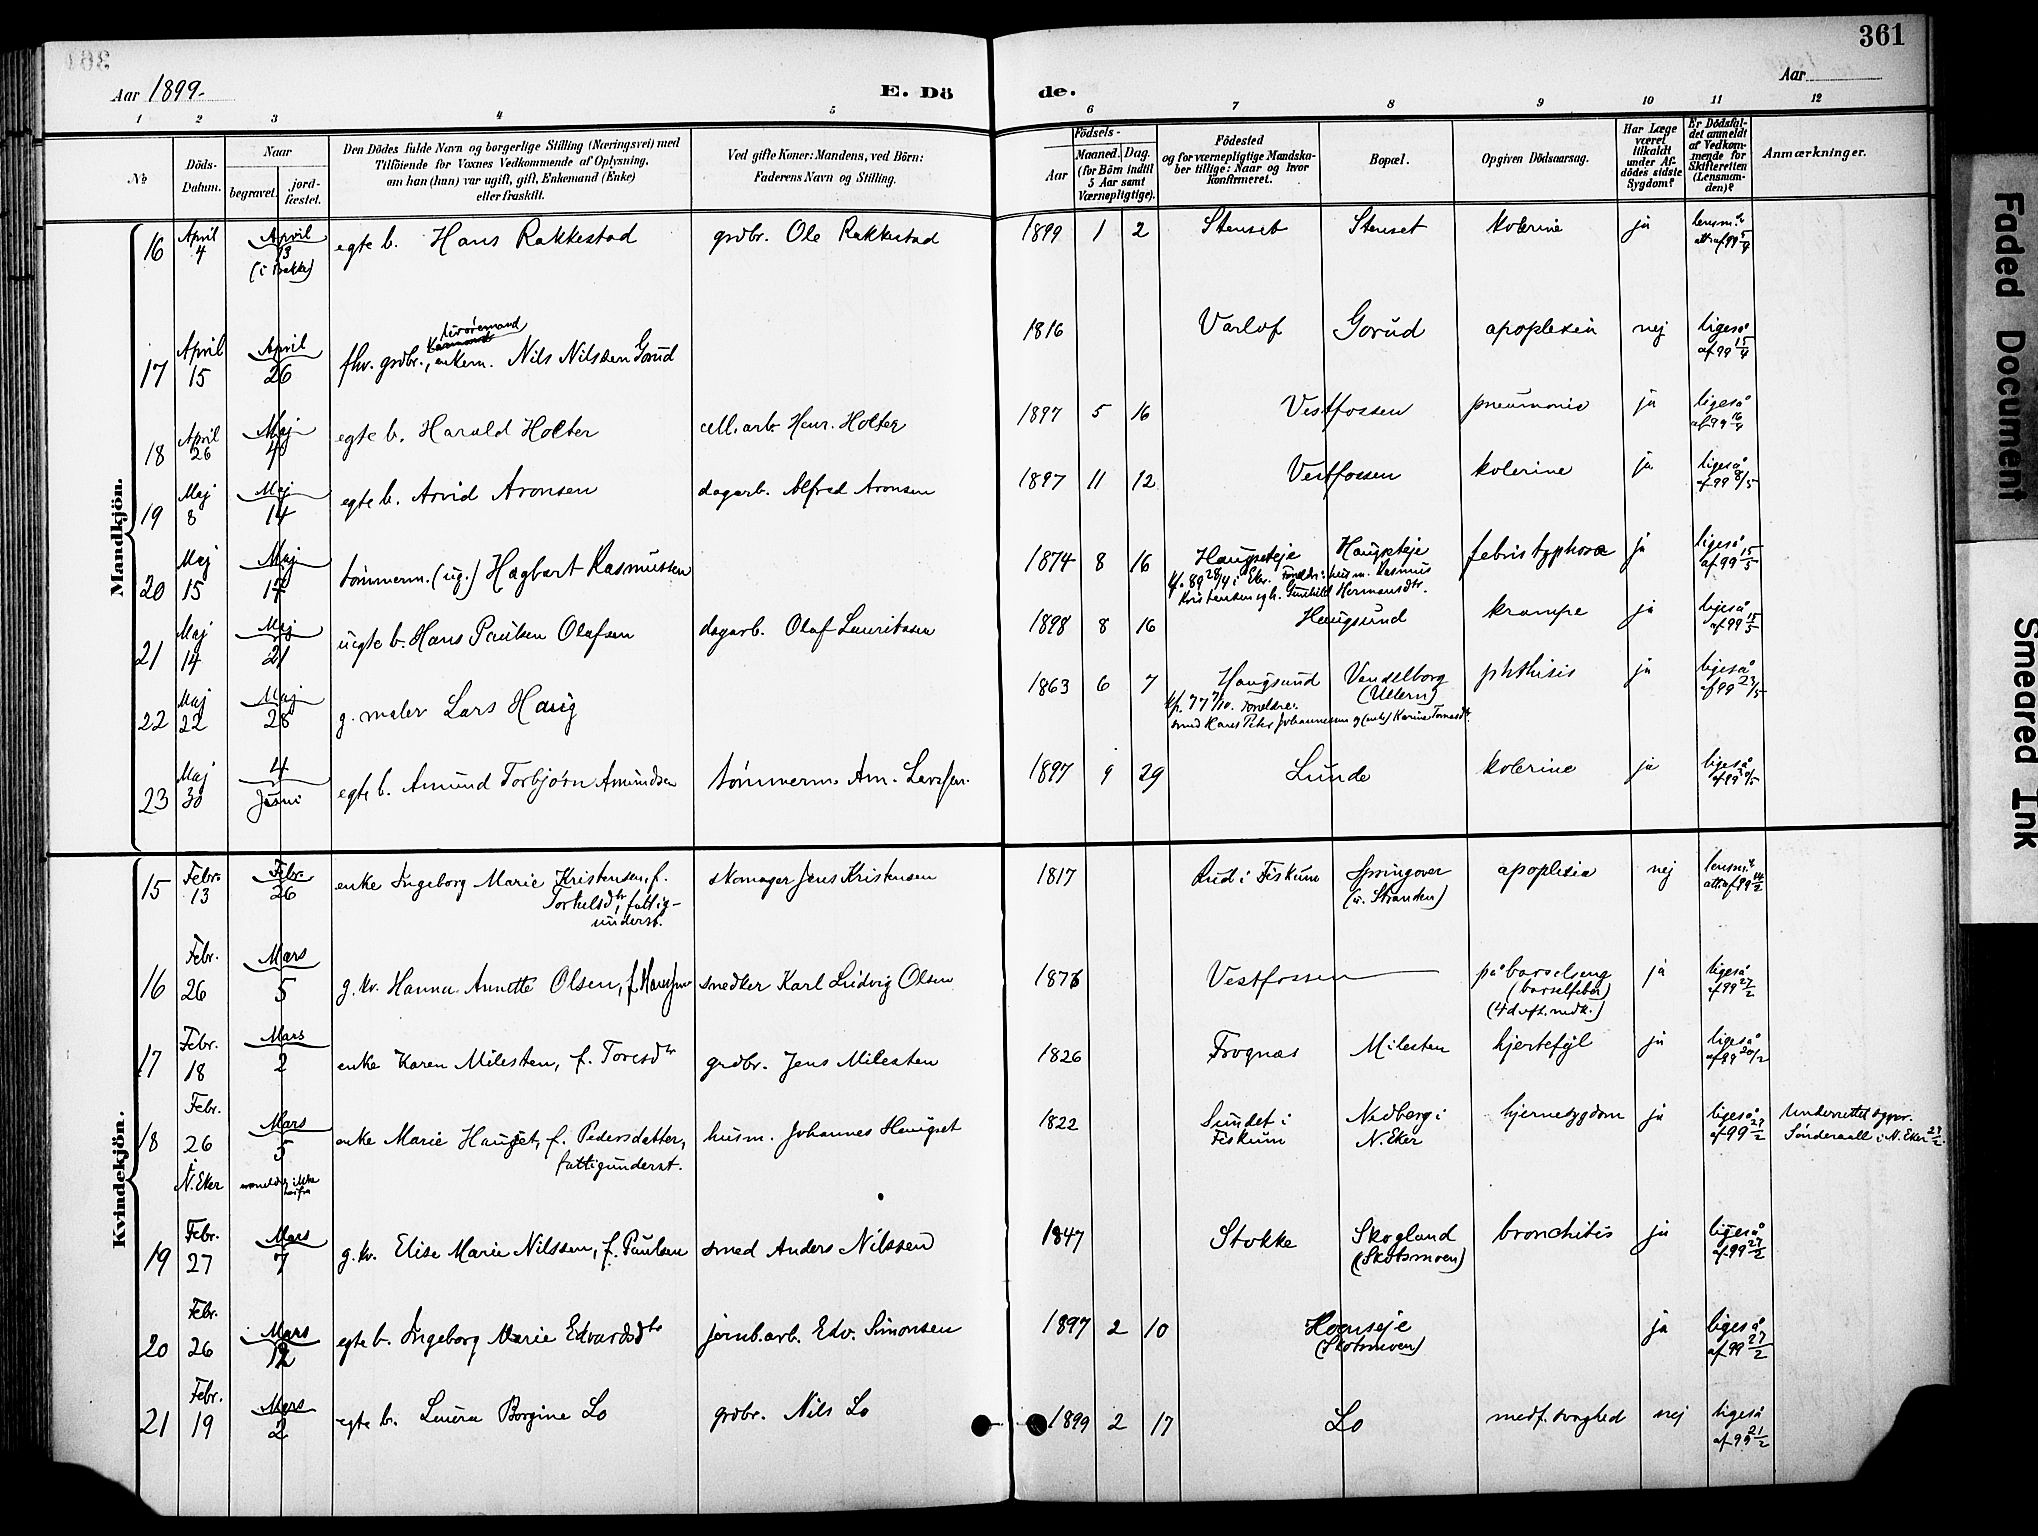 361
Aar 1899.
E. Døde.
Aar
1 2 3 4 5 6 7 8 9 10 11 12
№
Döds-Datum.
Naar
begravet.
jordfæstet.
Den Dödes fulde Navn og borgerlige Stilling (Næringsvei) med
Tilföiende for Voxnes Vedkommende af Oplysning,
om han (hun) var ugift, gift, Enkemand (Enke)
eller fraskilt.
Ved gifte Koner: Mandens, ved Børn:
Faderens Navn og Stilling.
Födsels-
Aar
Maaned. Dag.
(for Börn indtil
5 Aar samt
Værnepligtige).
Födested
og for værnepligtige Mandska-
ber tillige: Naar og hvor
konfirmeret.
Bopæl.
Opgiven Dödsaarsag.
Har Læge
været
tilkaldt
under Af-
dödes sidste
Sygdom?
Er Dödsfal-
det anmeldt
af Vedkom-
mende for
Skifteretten
(Lensman-
den)?
Anmærkninger.
Mandkjön.
16 April 4 April 13 egte b. Hans Rakkestad grdbr. Ole Rakkestad 1899 1 2 Stenset Stenset kolerine ja lensm. att. af 99 5/4
17 April 15 April 26 fhv. grdbr., enkem. Nils Nilssen Gorud 1816 Varlof Gorud apoplexia nej ligeså af 99 15/4
18 April 26 Maj egte b. Harald Holter cell. arb. Henr. Holter 1897 5 16 Vestfossen pneumonie ja ligeså
19 Maj 8 Maj 14 egte b. Arvid Aronsen dagarb. Alfred Aronsen 1897 11 12 Vestfossen kolerine ja ligeså af 99 8/5
20 Maj 15 Maj 17 tømmerm. (ug.) Hagbart Rasmussen 1874 8 16 Haugseteje Haugseteje febris typhosa ja ligeså af 99 15/5
kf. 89 28/4 i Eker. Foreldre: husm. Rasmus
Kristensen og h. Gunhild Hermansdtr.
21 Maj 14 Maj 21 uegte b. Hans Paulsen Olafsen dagarb. Olaf Lauritssen 1898 8 16 Haugsund krampe ja ligeså af 99 15/5
22 Maj 22 Maj 28 g. maler Lars Haug 1863 6 7 Haugsund Vendelborg (Ullern) phthisis ja ligeså af 99 23/5
kf. 77 7/10. Foreldre:
smed Hans Peter Johannessen og Karine
23 Maj 30 4 Juni egte b. Amund Torbjørn Amundsen tømmerm. Am. Larssen 1897 9 29 Lunde kolerine ja ligeså
Kvindekjön.
15 Febr. 13 Febr. 26 enke Ingeborg Marie Kristensen, f. Torkelsdtr, fattigunderst. skomager Jens Kristensen 1817 Rud i Fiskum Springover (v. Stranden) apoplexia nej lensm. att. af 99 14/2
16 Febr. 26 Mars 5 g. kv. Hanna Annette Olsen, f. Hanssen snedker Karl Ludvig Olsen 1876 Vestfossen på barselseng (barselfeber) (4 d. eft. nedk.) ja ligeså af 99 27/2
17 Febr. 18 Mars 2 enke Karen Milesten, f. Toresdtr grdbr. Jens Milesten 1826 Frognæs Milesten hjertefejl ja ligeså af 99 20/2
18 Febr. 26 i N. Eker Mars 5 enke Marie Hauget, f. Pedersdatter, fattigunderst. husm. Johannes Haugset 1822 Sundet i Fiskum Nedberg i N. Eker hjernesygdom ja ligeså af 99 27/2 Underrettet sogepr. Sønderaall i N. Eker 27/2.
19 Febr. 27 Mars 7 g. kv. Elise Marie Nilssen, f. Paulsen smed Anders Nilssen 1847 Stokke Skogland (Skotsmoen) bronchitis ja ligeså af 99 27/2
20 Febr. 26 Mars 12 egte b. Ingeborg Marie Edvardsdtr jernb. arb. Edv. Simonsen 1897 2 10 Hoenseje (Skotsmoen) ja ligeså af 99 27/2
21 Febr. 19 Mars 2 egte b. Laura Borgine Lo grdbr. Nils Lo 1899 2 17 Lo medf. svaghed nej ligeså af 99 21/2
Faded Document
Smeared Ink